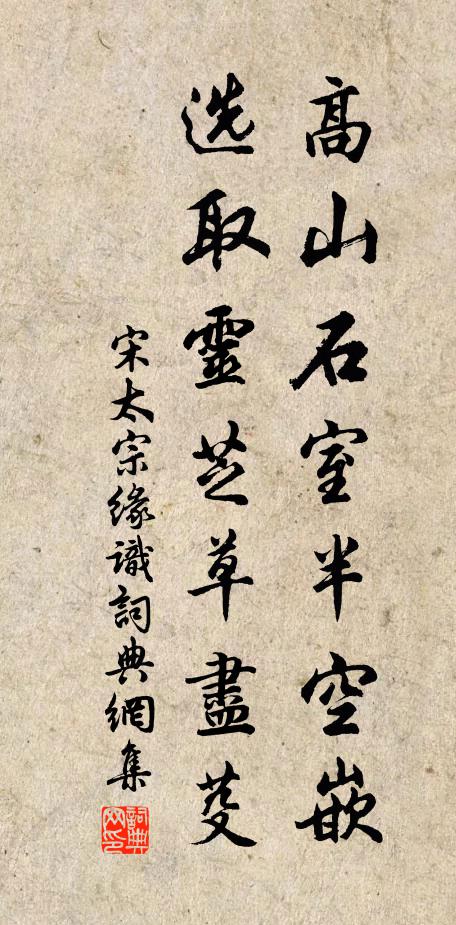 高山石室半空嵌
選取靈芝草盡芟
宋太宗緣識詞典網集
詞典网印